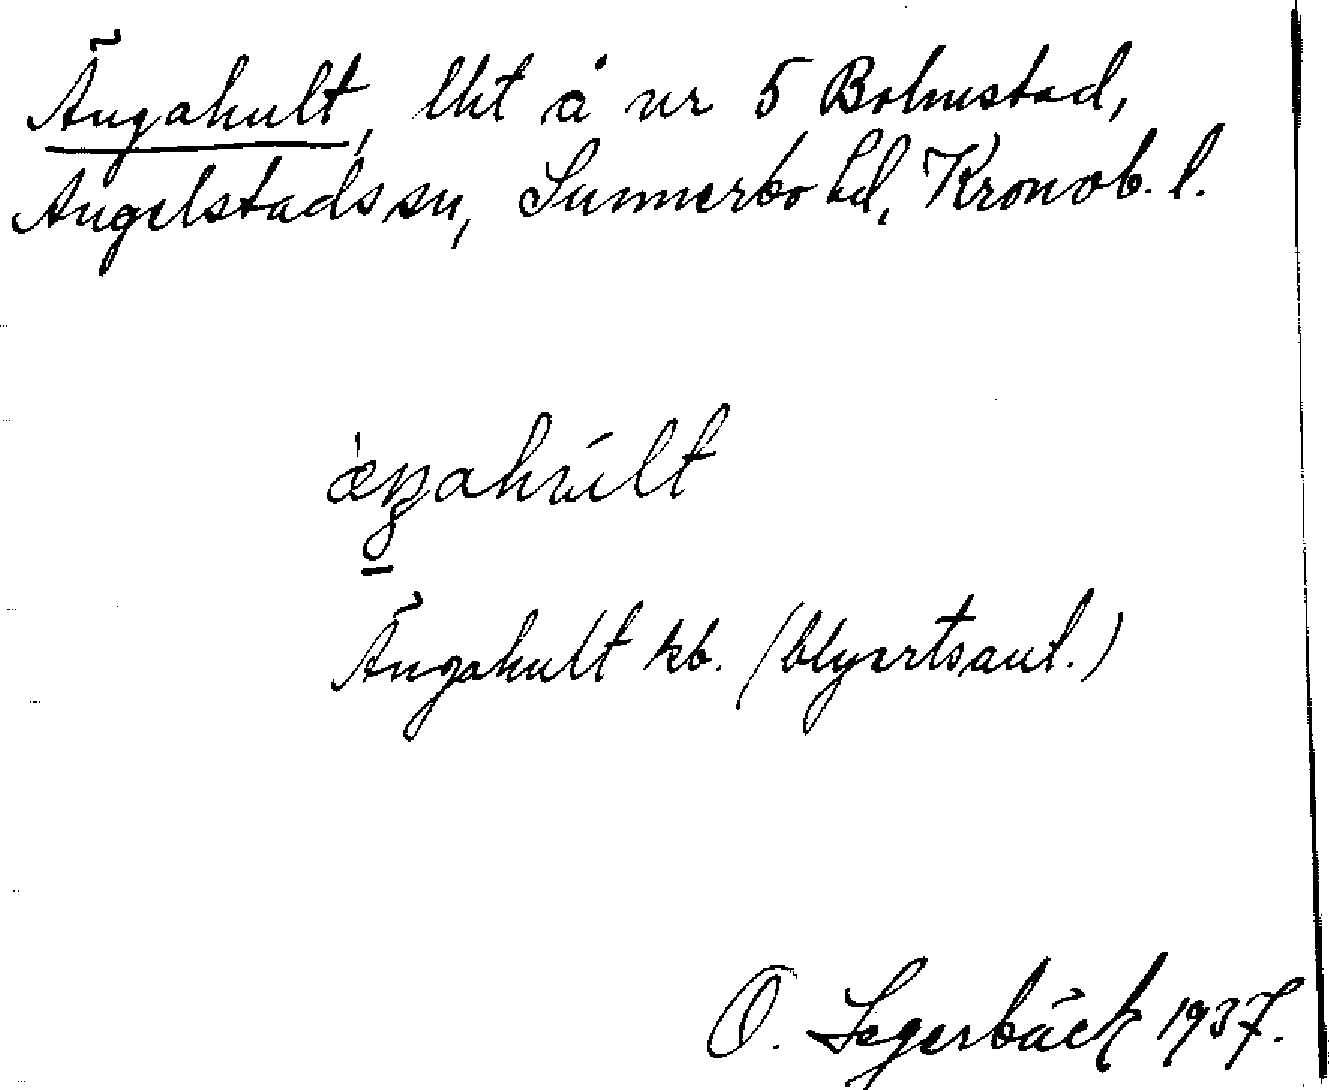 Ängahult, lht å nr 5 Bolmstad,
Angelstads sn, Sunnerbo hd, Kronob. l.
Ängahult kb. (blyertsant.)
O. Segerbäck 1937.